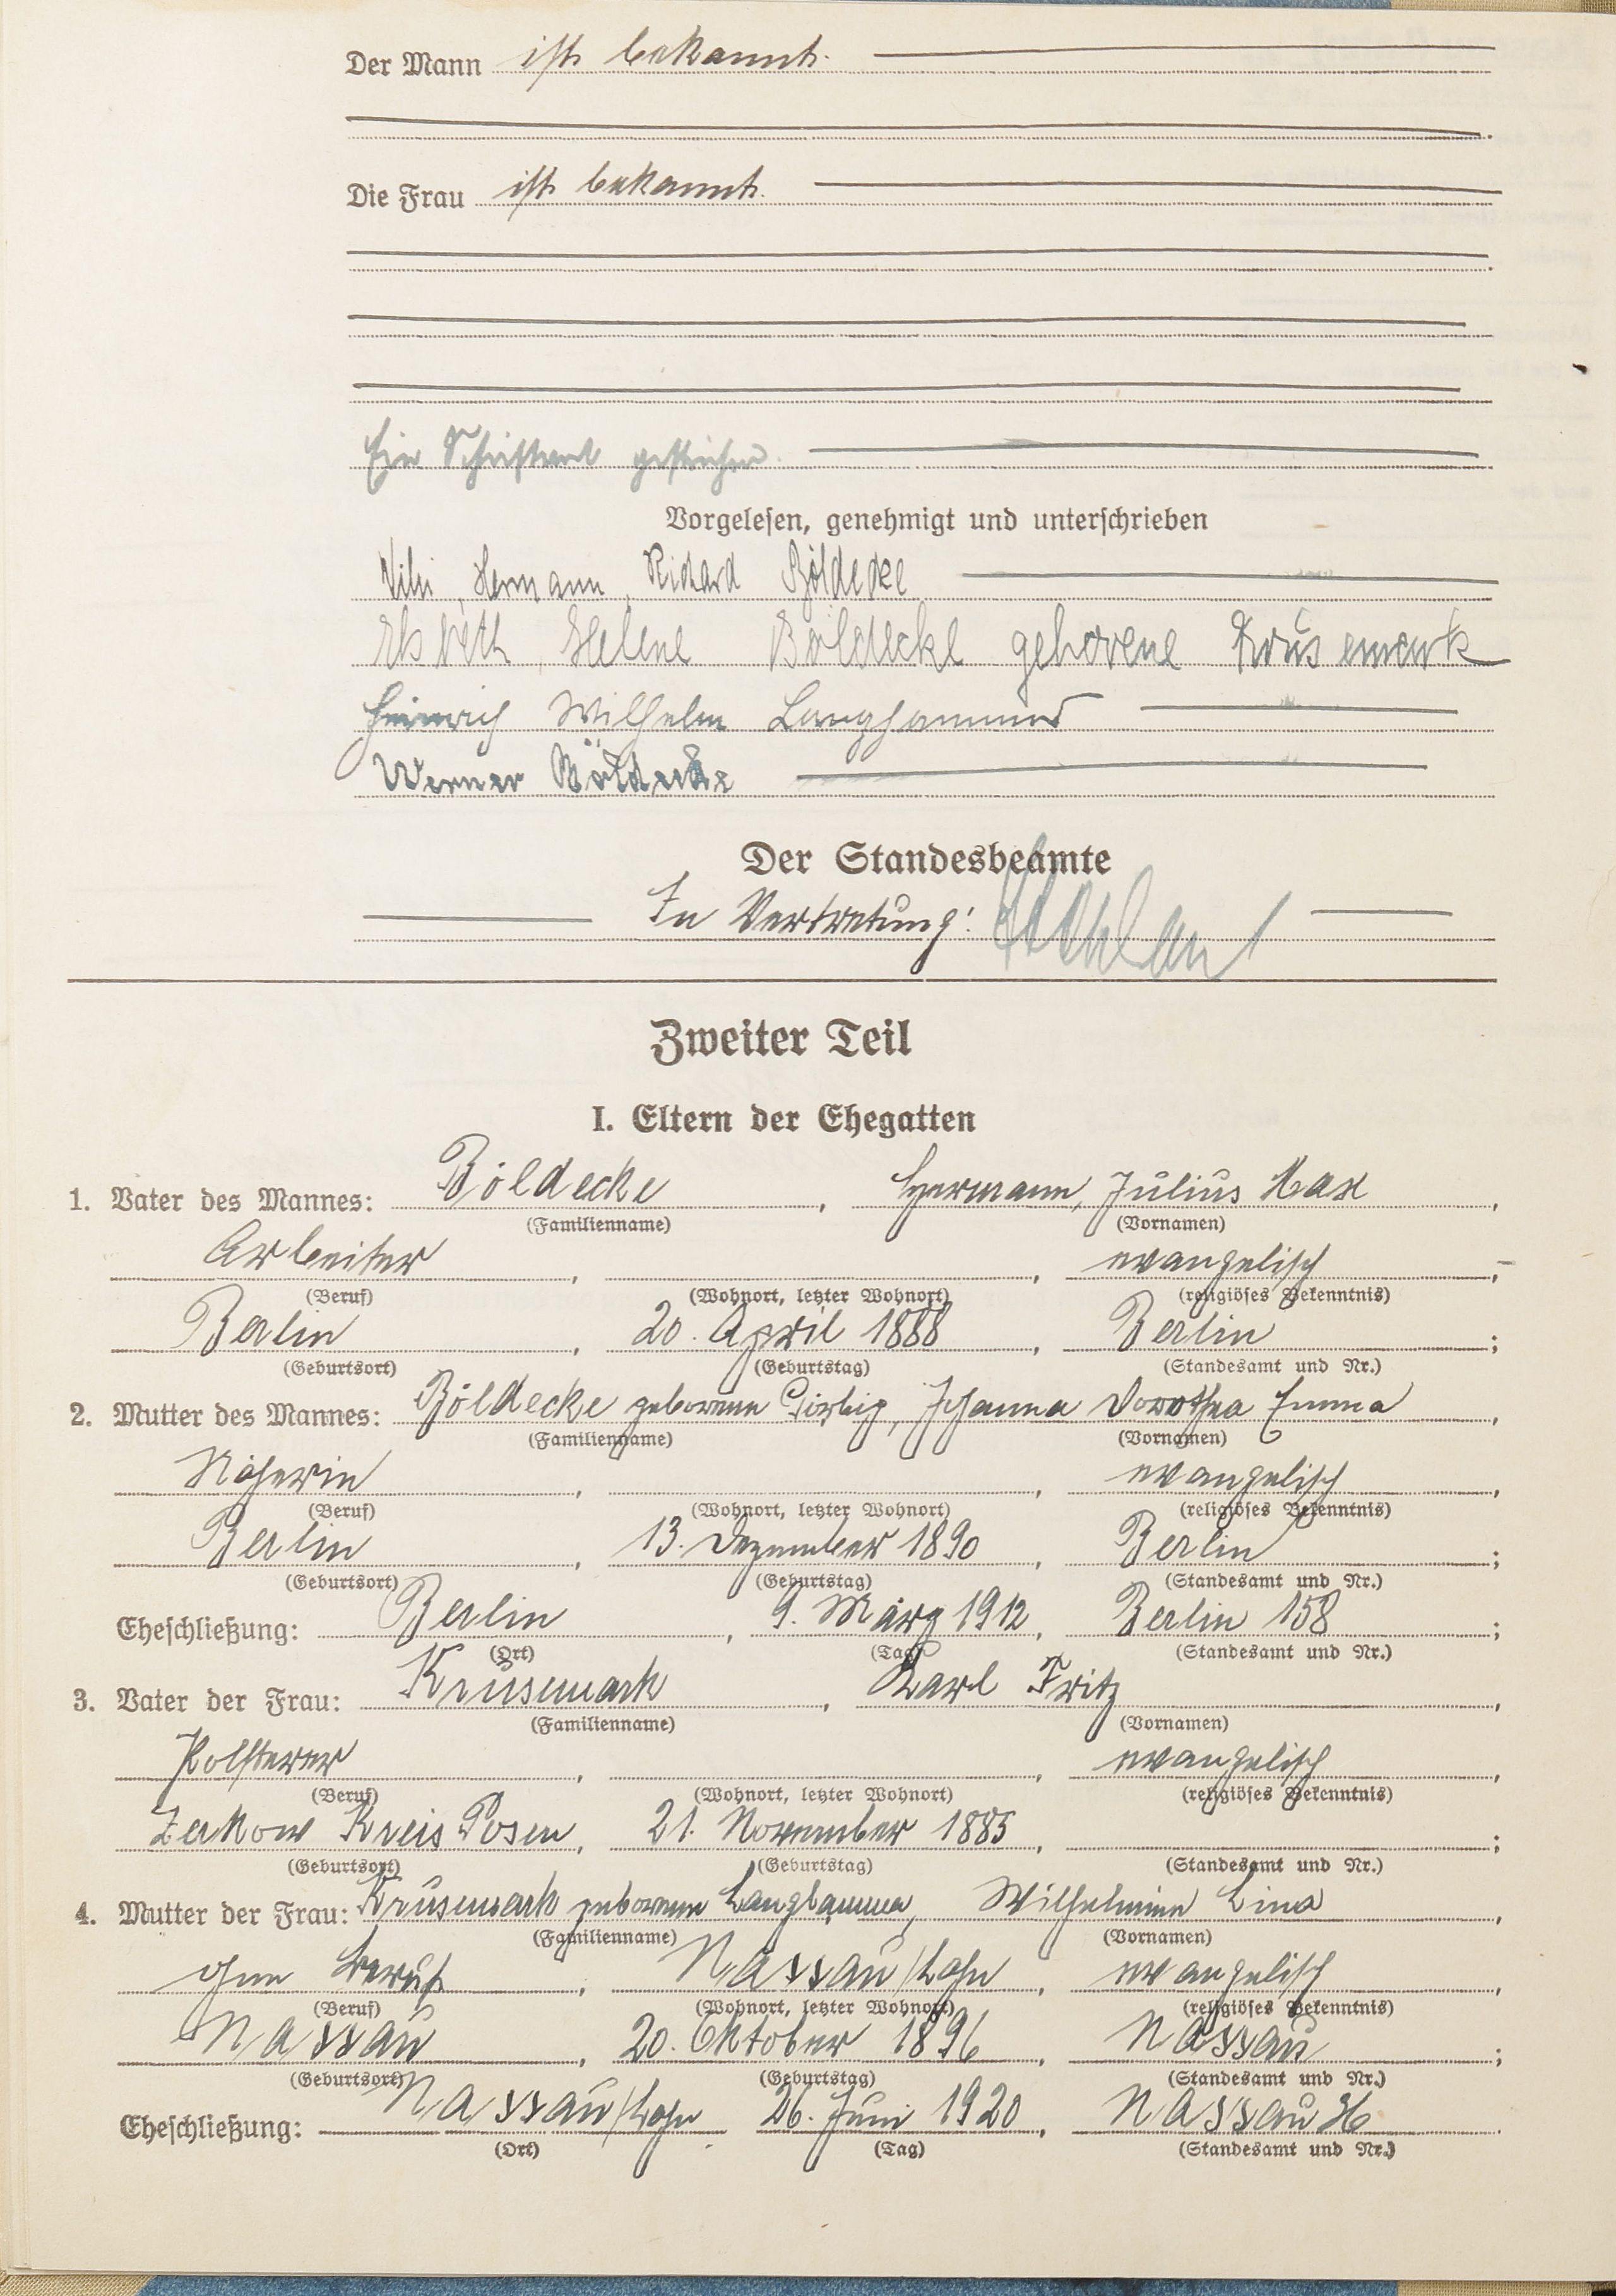 Der Mann ist bekannt.
Die Frau ist bekannt.
Ein Schriftwort gestrichen.
Vorgelesen, genehmigt und unterschrieben
Hermann, Richard Böldecke
Elsbeth, Helene Böldecke geborene Krusemark
Heinrich Wilhelm Langhammer
Werner Böldecke
Der Standesbeamte
In Vertretung:
Zweiter Teil
I. Eltern der Ehegatten
1. Vater des Mannes: Böldecke, Hermann, Julius Max,
(Familienname) (Vornamen)
Arbeiter, , evangelisch,
(Beruf) (Wohnort, letzter Wohnort) (religiöses Bekenntnis)
Berlin, 20. April 1888, Berlin;
(Geburtsort) (Geburtstag) (Standesamt und Nr.)
2. Mutter des Mannes: Böldecke geborene, Johanna Dorothea Emma,
(Familienname) (Vornamen)
Näherin, , evangelisch,
(Beruf) (Wohnort, letzter Wohnort) (religiöses Bekenntnis)
Berlin, 13. Dezember 1890, Berlin;
(Geburtsort) (Geburtstag) (Standesamt und Nr.)
Eheschließung: Berlin, 9. März 1912, Berlin 158;
(Ort) (Tag) (Standesamt und Nr.)
3. Vater der Frau: Krusemark, Karl Fritz,
(Familienname) (Vornamen)
Polsterer, , evangelisch,
(Beruf) (Wohnort, letzter Wohnort) (religiöses Bekenntnis)
Zerkow Kreis Posen, 21. November 1885, ;
(Geburtsort) (Geburtstag) (Standesamt und Nr.)
4. Mutter der Frau: Krusemark geborene Langhammer, Wilhelmine Lina,
(Familienname) (Vornamen)
ohne Beruf, Nassau/Lahn, evangelisch,
(Beruf) (Wohnort, letzter Wohnort) (religiöses Bekenntnis)
Nassau, 20. Oktober 1896, Nassau;
(Geburtsort) (Geburtstag) (Standesamt und Nr.)
Eheschließung: Nassau/Lahn, 26. Juni 1920, Nassau
(Ort) (Tag) (Standesamt und Nr.)